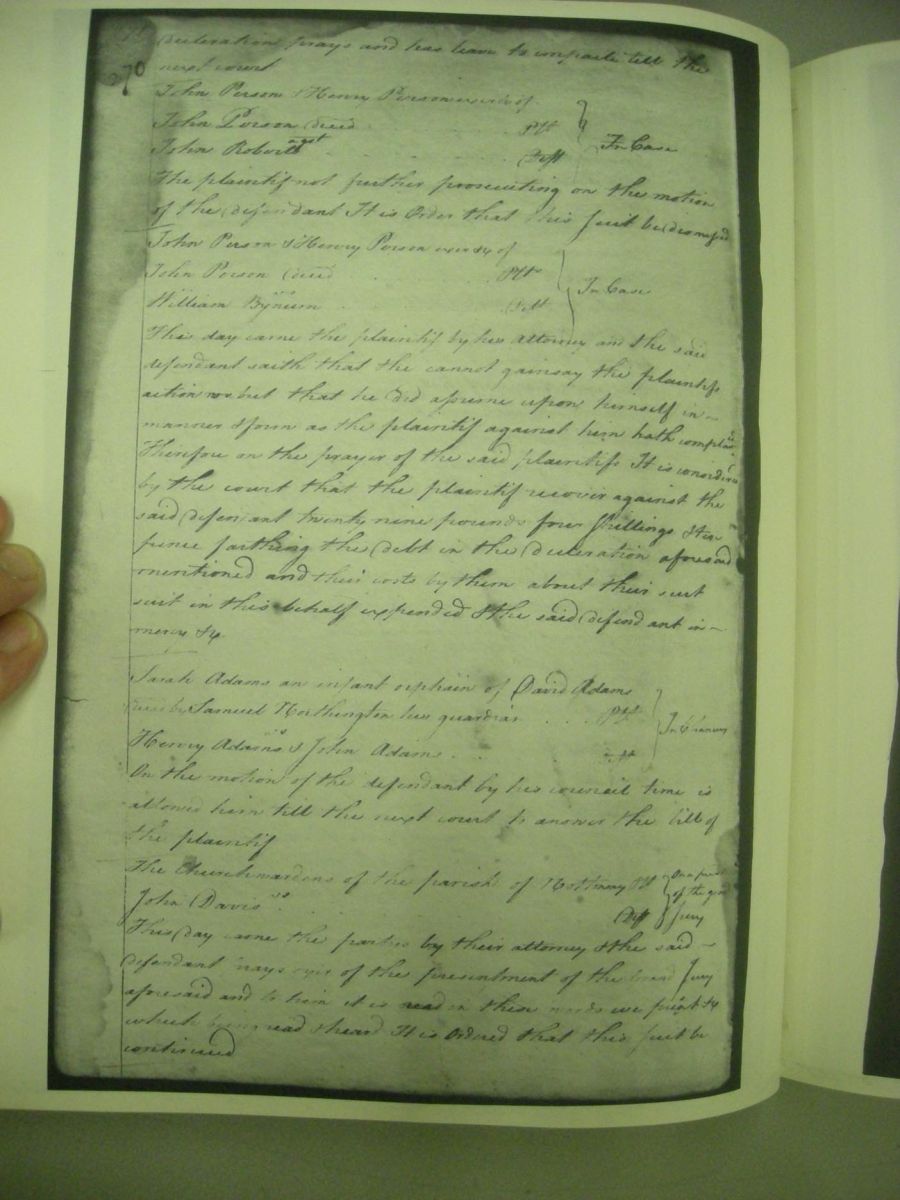 270
declaration prays and has leave to imparle till the
next court
John Person & Henry Person exors of
John Person deced Plt
agst
John Roberts Deft
In Case
The plaintif not further prosecuting on the motion
of the defendant It is Order that this suit be dismised
John Person & Henry Person exors of
John Person deced Plts
vs
William Bynum Deft
In Case
This day came the plaintif by his attorney and the said
defendant saith that the cannot gainsay the plaintifs
action nor but that he did assume upon himself in
manner & form as the plaintif against him hath complaind
Therefore on the prayer of the said plaintifs It is considered
by the court that the plaintif recover against the
said defendant twenty nine pounds four shillings
pence farthing the debt in the declaration aforesaid
mentioned and their costs by them about their suit
suit in this behalf expended & the said defendant in
mercy &c
Sarah Adams an infant orphain of David Adams
deced by Samuel Northington her guardian Plt
vs
Henry Adams & John Adams Deft
In Chancery
On the motion of the defendant by his council time is
allowed him till the next court to answer the bill of
the plaintif
The Churchwardens of the parish of Nottoway Plt
vs
John Davis Deft
of the grand
Jury
This day came the parties by their attorney & the said
defendant prays oyer of the presentment of the Grand Jury
aforesaid and to him it is read in these words we &c
which being read & heard It is Ordered that this suit be
continued